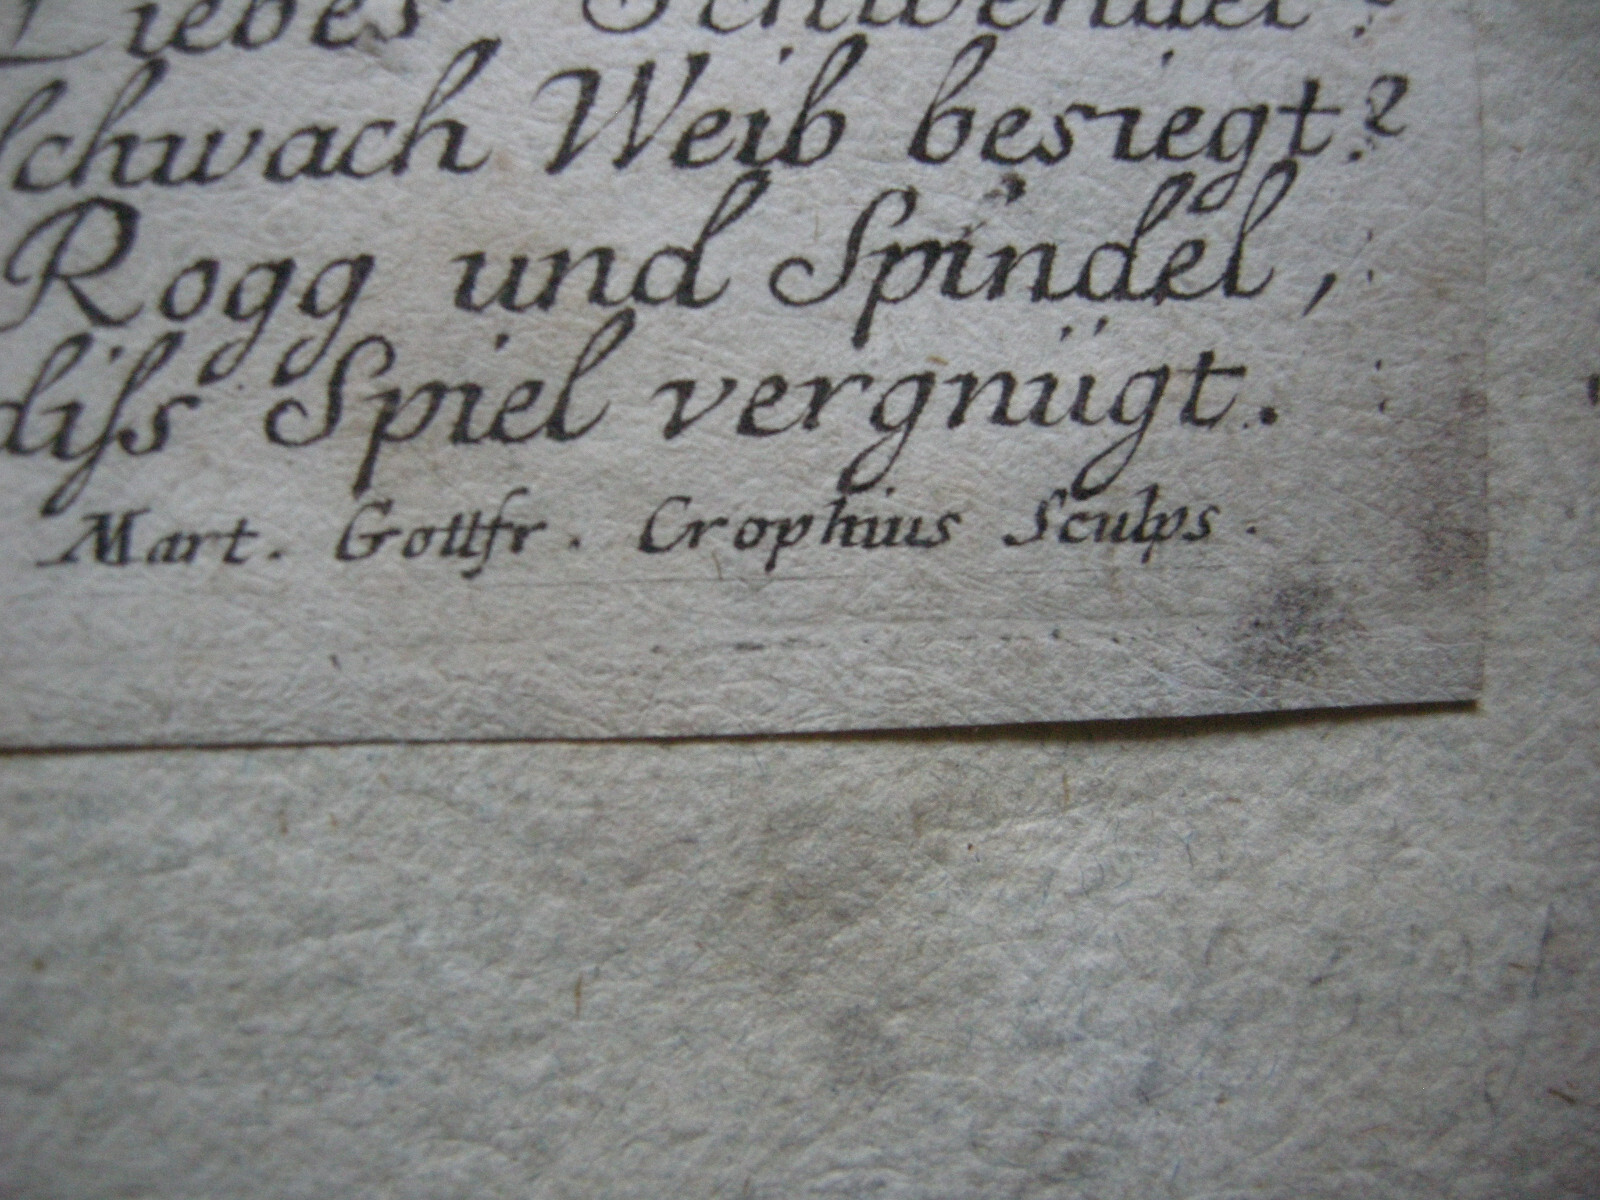 Liebes Schwendel?
schwach Weib besiegt?
Rogg und Spindel,
diſs Spiel vergnügt.
Mart. Gottfr. Crophius Sculps.